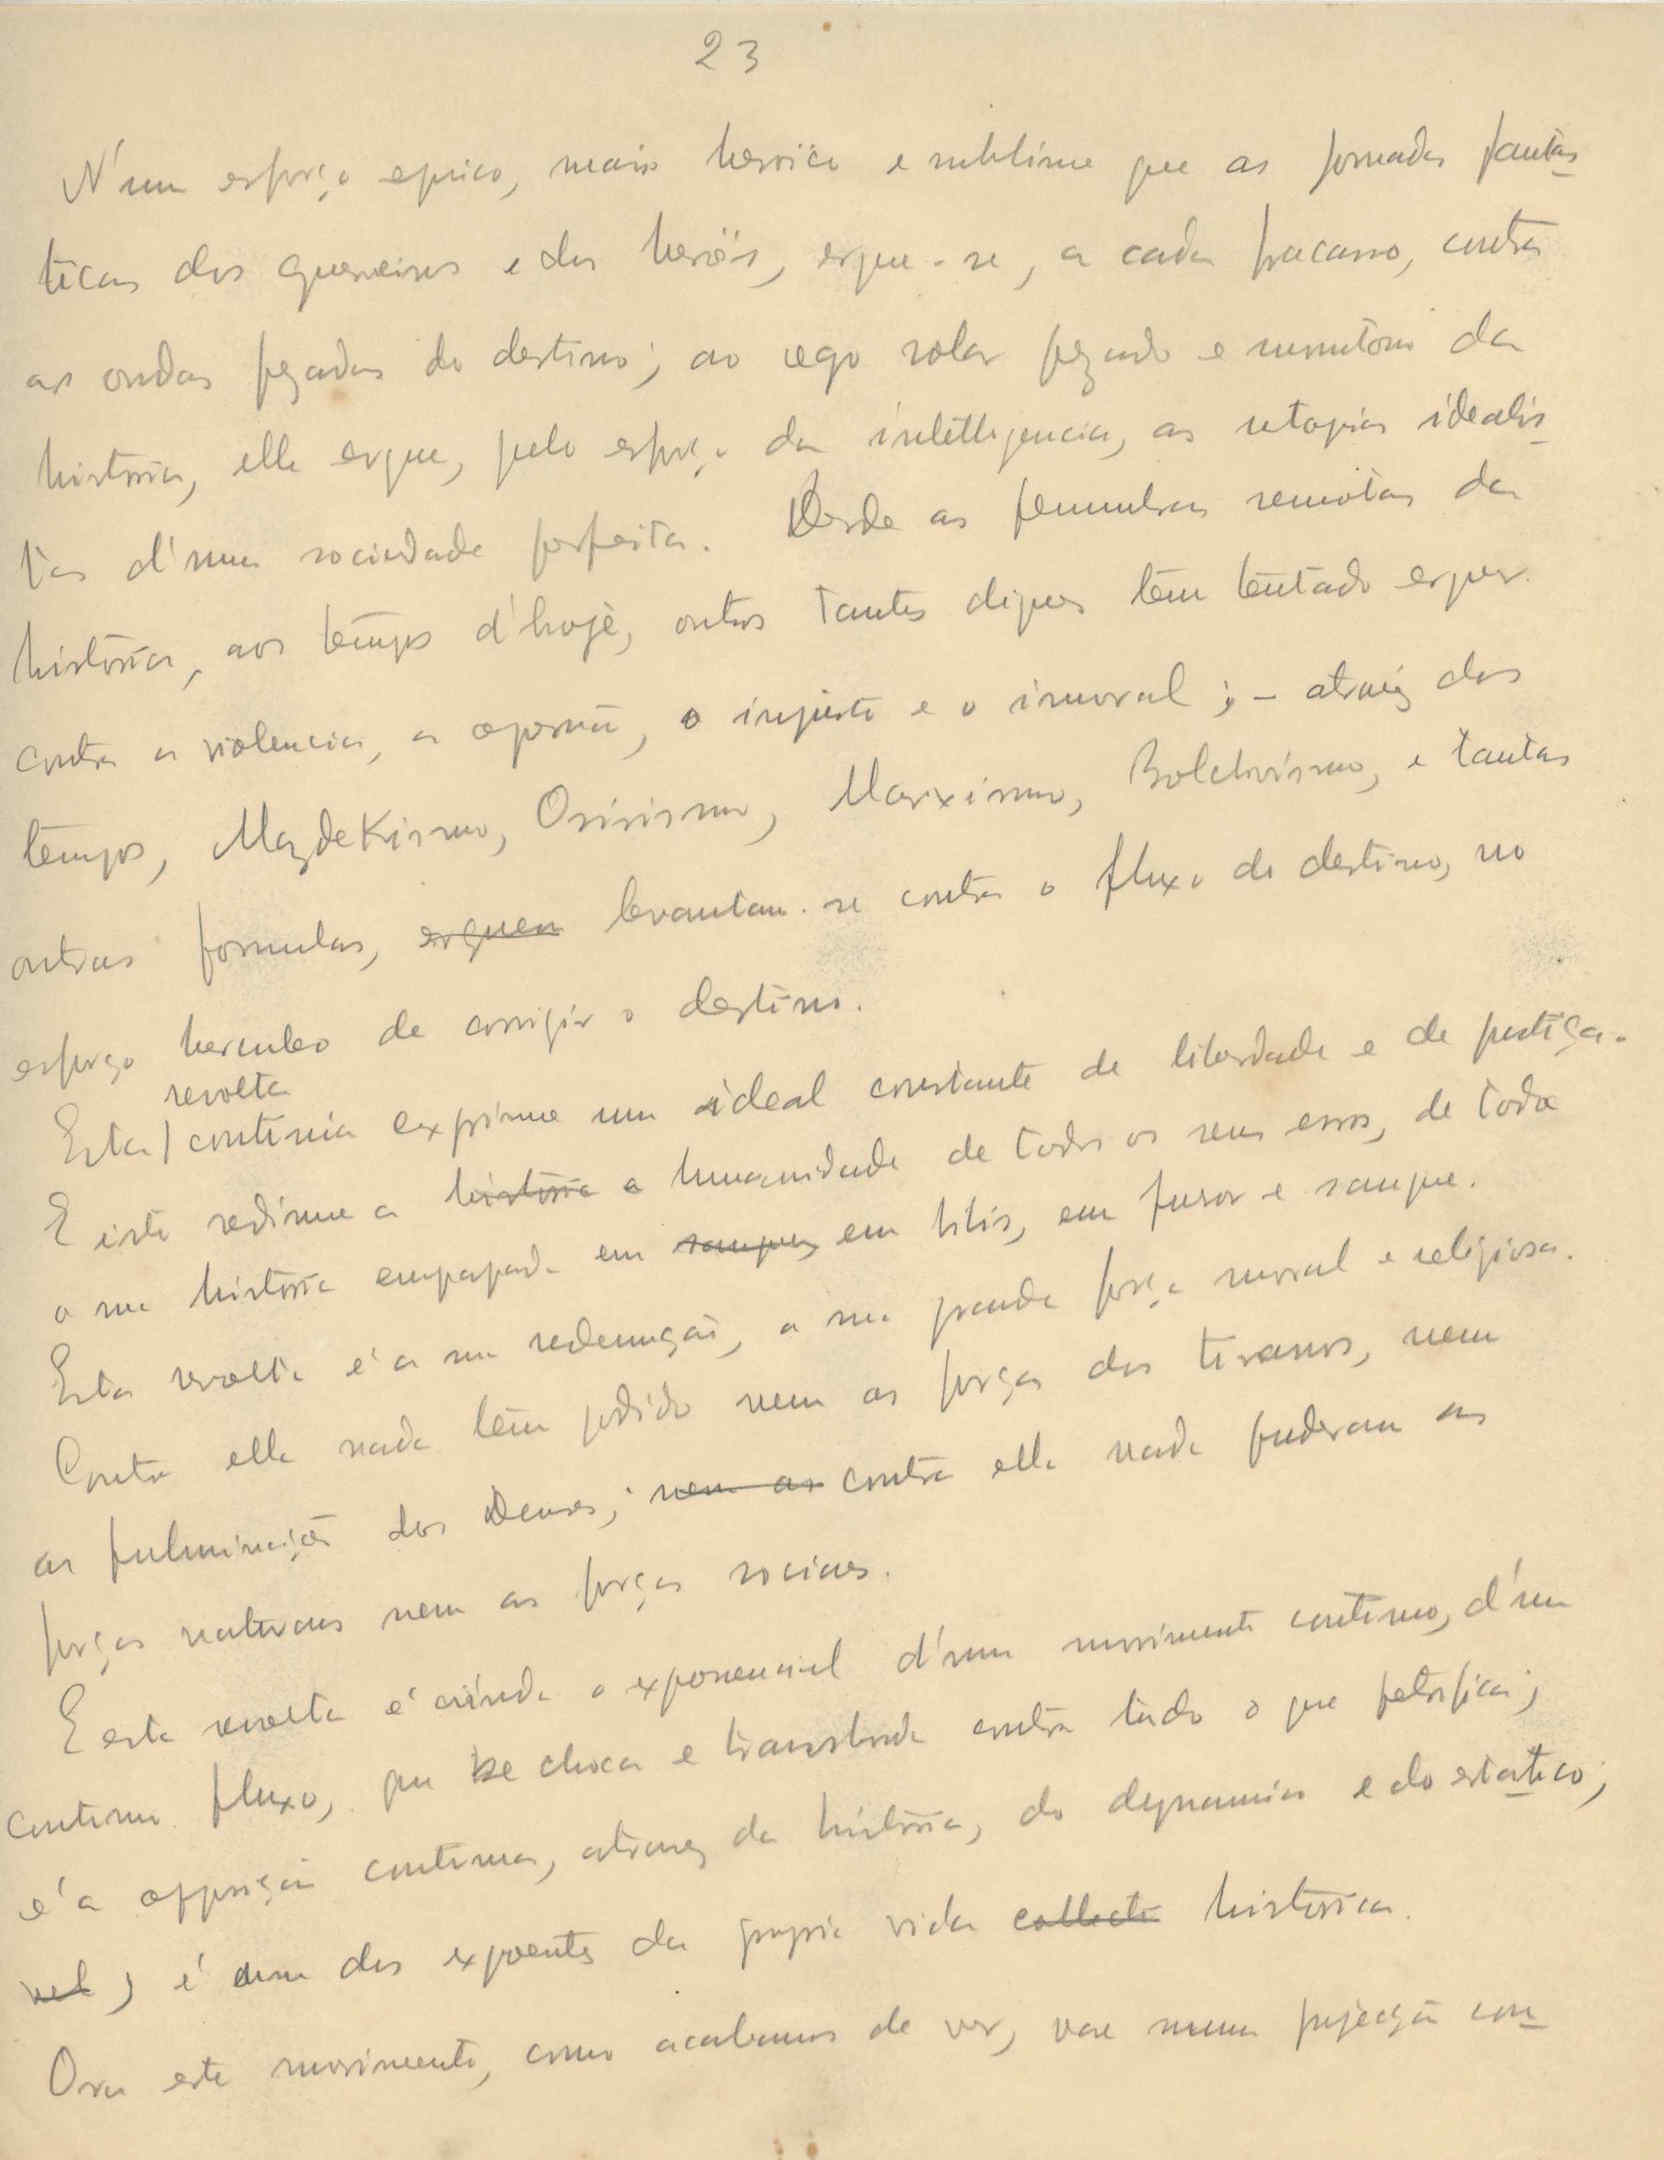 23
N'um esforço epico, mais heroico e sublime que as jornadas fantas-
ticas dos guerreiros e dos heróis, ergue-se, a cada fracasso, contra
as ondas pezadas do destino; ao cego rolar pezado e monotono da
historia, elle ergue, pelo esforço da intelligencia, as utopias idealis-
tas d'uma sociedade perfeita. Desde as penumbras remotas da
historia, aos tempos d'hoje, outros tantos diques têm tentado erguer
contra a violencia, a opressão, o injusto e o imoral; – atravez dos
tempos, MazdeKismo, Osirismo, Marxismo, Bolchevismo, e tantas
outras formulas, erguem levantam-se contra o fluxo do destino, no
esforço herculeo de corrigir o destino.
revolta
Esta | continua exprime um ideal constante de liberdade e de justiça.
E isto redime a historia a humanidade de todos os seus erros, de toda
a sua historia empapada em sangue, em bilis, em furor e sangue.
Esta revolta é a sua redempção, a sua grande força moral e religiosa.
Contra ella nada têm podido nem as forças dos tiranos, nem
as fulminações dos Deuses; nem as contra ella nada puderam as
forças naturaes nem as forças sociaes.
E esta revolta é ainda o exponencial d'um movimento continuo, d'um
continuo fluxo, que se choca e transborda contra tudo o que petrifica;
é a opposição continua, atravez da historia, do dynamico e do estatico;
vel; é um dos expoentes da propria vida collecti historica.
Ora este movimento, como acabamos de ver, vae numa projecção con-